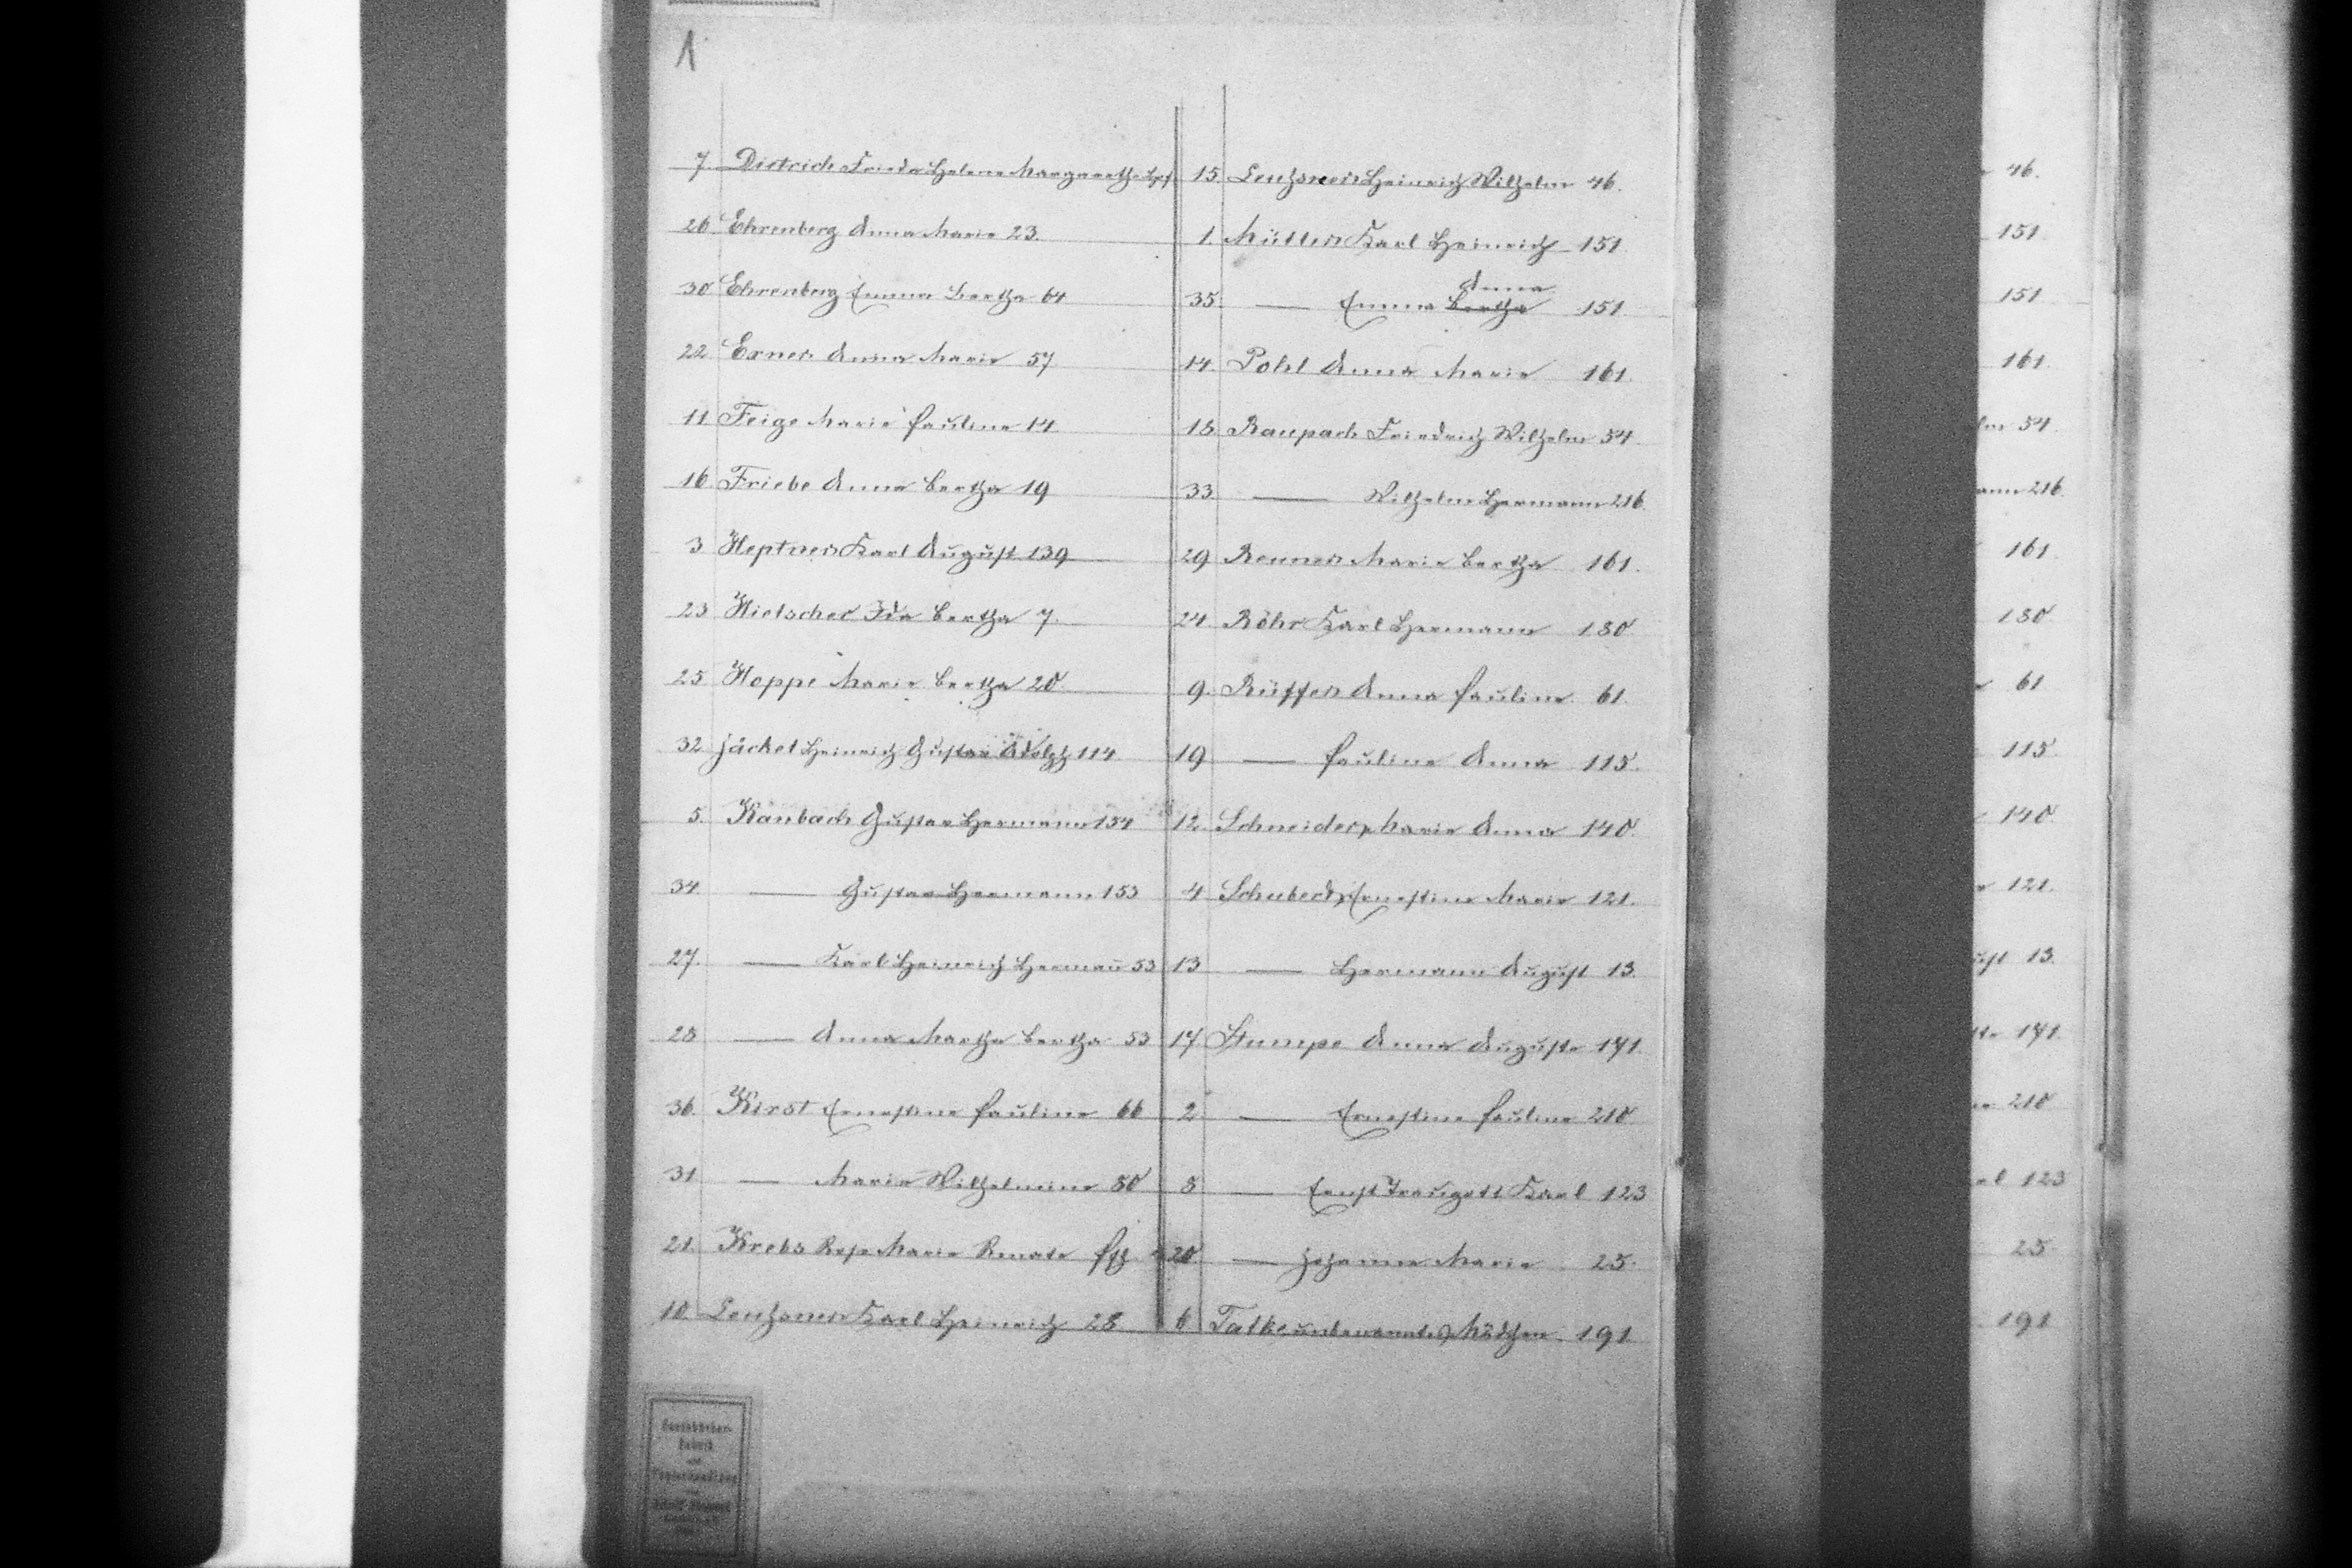 1
7. Dietrich Frieda Helene Margarethe
26 Ehrenberg Anna Marie 23.
30 Ehrenberg Emma Bertha 64
22 Exner Anna Marie 57
11 Feige Marie Pauline 14
16 Friebe Anna Bertha 19
3 Heptner Karl August 139
23 Hielscher Ida Bertha 7.
25 Hoppe Marie Bertha 20
32 Jäckel Heinrich Gustav Adolph 114
5. Kaubach Gustav Hermann 154
34 — Gustav Hermann 153
27. — Karl Heinrich Hermañ 53
28 — Anna Martha Bertha 53
36. Kirst Ernestine Pauline 66
31 — Marie Wilhelmine 80
21. Krebs Marie Renate
10. Leuchsner Karl Heinrich 28
15. Leuchsner Heinrich Wilhelm 46.
1. Müller Karl Heinrich 151
Anna
35. — Emma Bertha 151.
14. Pohl Anna Marie 161.
18. Raupach Friedrich Wilhelm 54.
33 — Wilhelm Hermann 216.
29 Renner Marie Bertha 161.
24. Röhr Karl Hermann 180
9. Rüffer Anna Pauline 61.
19 — Pauline Anna 115.
12. Schneider, Marie Anna 140.
4 Schubert, Ernestine Marie 121.
13 — Hermann August 13.
17 Stumpe Anna Auguste 171.
2 — Ernestine Pauline 210
8 — Ernst Traugott Karl 123
20 — Johanne Marie 25.
6 Talke unbenanntes Mädchen 191
46.
151
151
161.
54
216.
161
180
61
115
140
121.
13.
171.
210
123
25
191